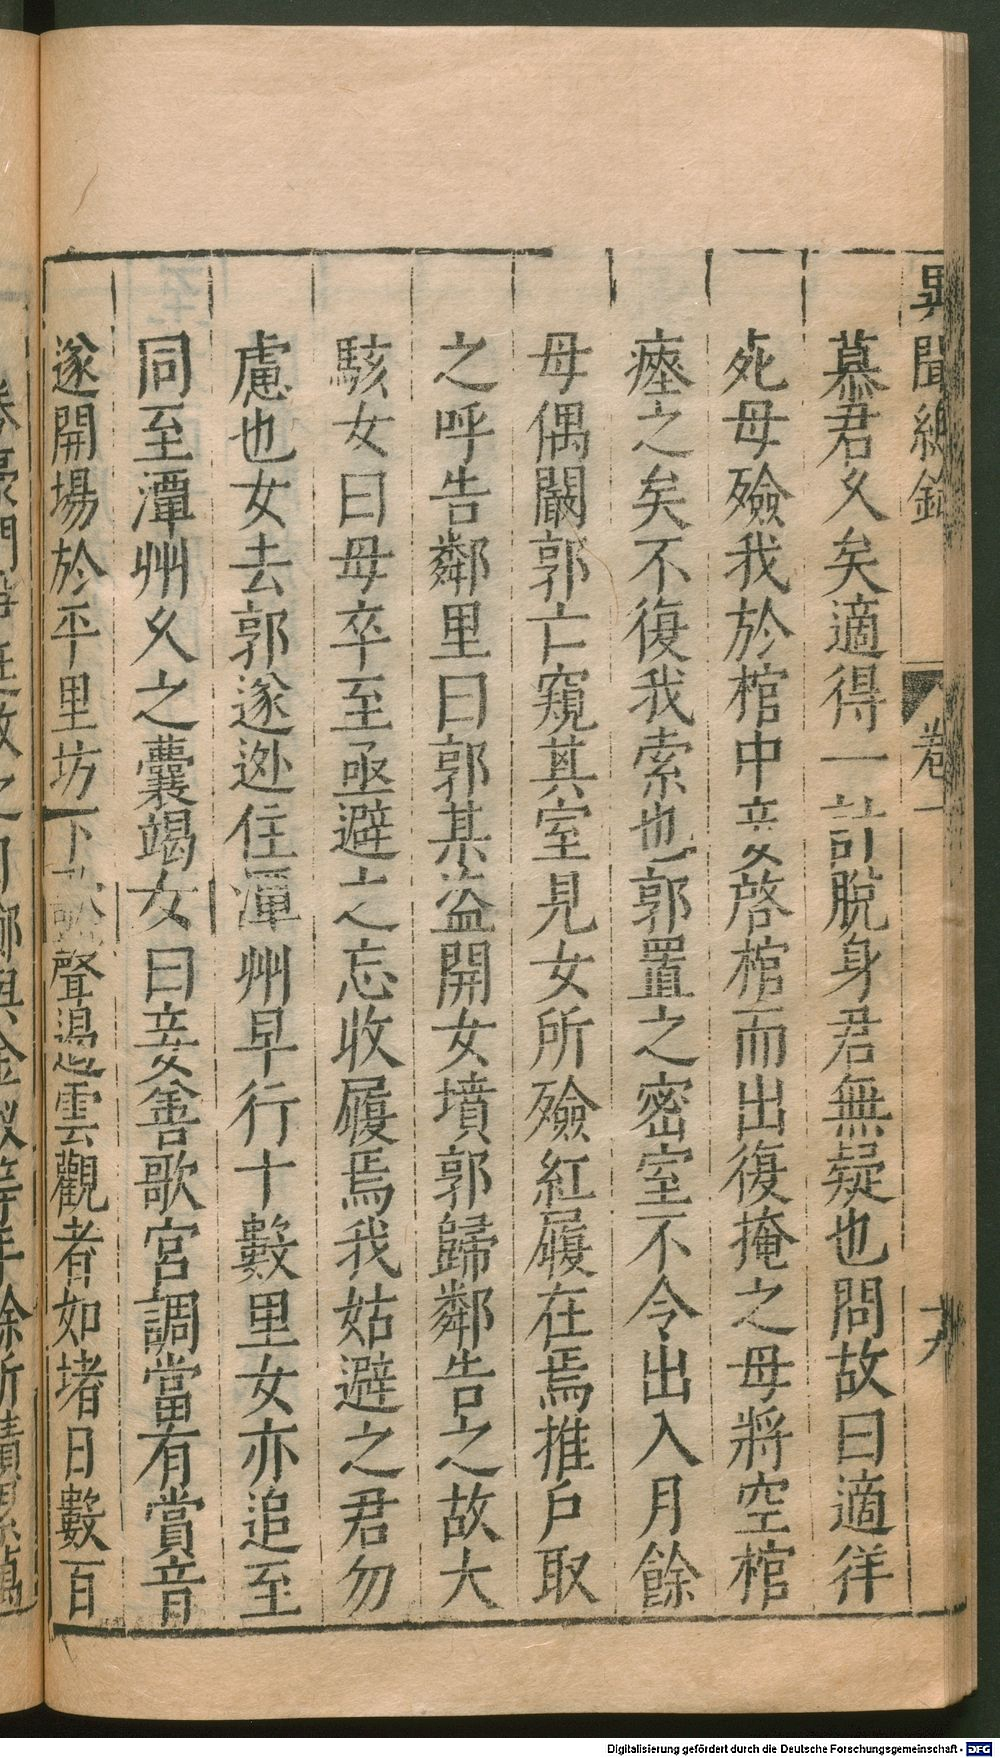 異聞總錄 卷一 十九
慕君久矣適得一計脫身君無疑也問故曰適佯
死母殮我於棺中妾啓棺而出復掩之母將空棺
瘞之矣不復我索也郭置之密室不令出入月餘
母偶闞郭亡窺其室見女所殮紅履在焉推戶取
之呼告鄰里曰郭某盜開女墳郭歸鄰告之故大
駭女曰母卒至亟避之忘收履焉我姑避之君勿
慮也女去郭遂逊住潭州早行十數里女亦追至
同至潭州久之囊竭女曰妾善歌宮調當有賞音
遂開場於平里坊下歌聲遏雲觀者如堵日數百
Digitalisierung gefördert durch die Deutsche Forschungsgemeinschaft - DFG